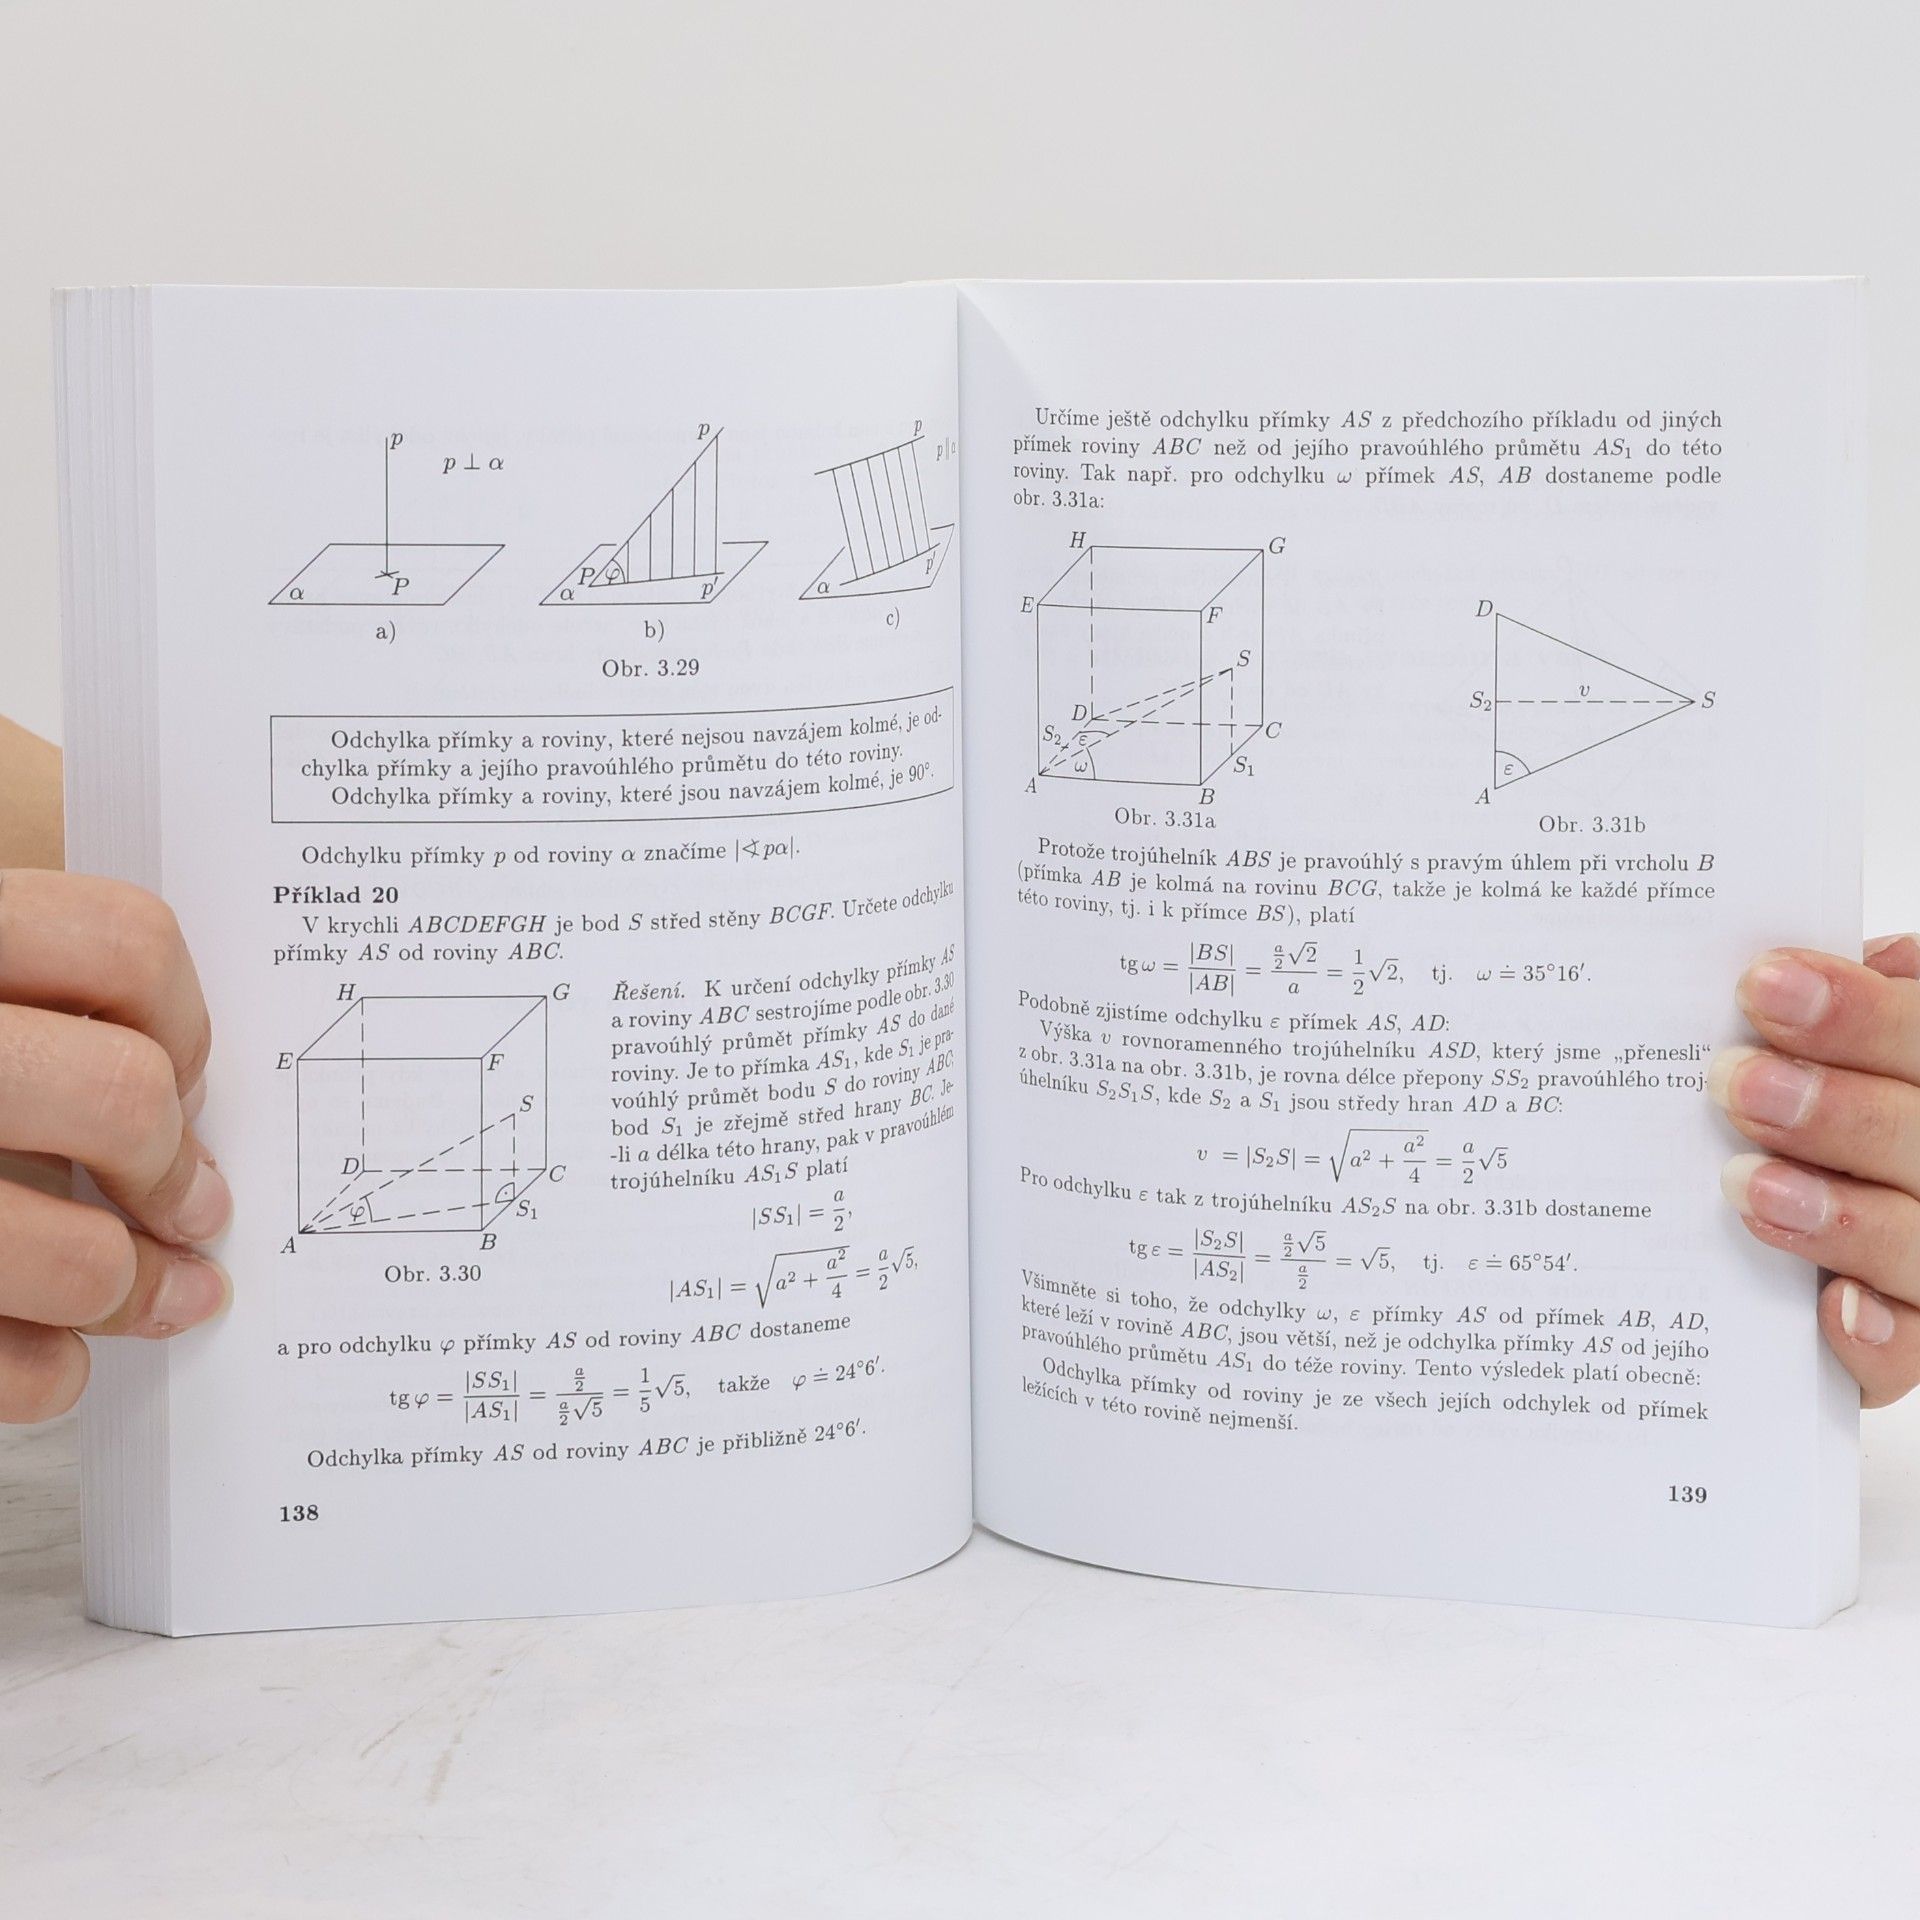 p
p ⊥ α
α
P
a)
p
P
φ
α
p′
b)
p
p ∥ α
α
p′
c)
Obr. 3.29
Odchylka přímky a roviny, které nejsou navzájem kolmé, je od-
chylka přímky a jejího pravoúhlého průmětu do této roviny.
Odchylka přímky a roviny, které jsou navzájem kolmé, je 90°.
Odchylku přímky p od roviny α značíme |∢pα|.
Příklad 20
V krychli ABCDEFGH je bod S střed stěny BCGF. Určete odchylku
přímky AS od roviny ABC.
H
G
E
F
S
D
C
φ
S₁
A
B
Obr. 3.30
Řešení. K určení odchylky přímky AS
a roviny ABC sestrojíme podle obr. 3.30
pravoúhlý průmět přímky AS do dané
roviny. Je to přímka AS₁, kde S₁ je pra-
voúhlý průmět bodu S do roviny ABC;
bod S₁ je zřejmě střed hrany BC. Je-
-li a délka této hrany, pak v pravoúhlém
trojúhelníku AS₁S platí
|SS₁| = a/2,
|AS₁| = √(a² + a²/4) = a/2 √5,
a pro odchylku φ přímky AS od roviny ABC dostaneme
tg φ = |SS₁|/|AS₁| = (a/2)/(a/2 √5) = 1/5 √5, takže φ ≐ 24°6′.
Odchylka přímky AS od roviny ABC je přibližně 24°6′.
138
Určíme ještě odchylku přímky AS z předchozího příkladu od jiných
přímek roviny ABC než od jejího pravoúhlého průmětu AS₁ do této
roviny. Tak např. pro odchylku ω přímek AS, AB dostaneme podle
obr. 3.31a:
H
G
E
F
S
D
C
S₂
ε
ω
S₁
A
B
Obr. 3.31a
D
S₂
v
S
ε
A
Obr. 3.31b
Protože trojúhelník ABS je pravoúhlý s pravým úhlem při vrcholu B
(přímka AB je kolmá na rovinu BCG, takže je kolmá ke každé přímce
této roviny, tj. i k přímce BS), platí
tg ω = |BS|/|AB| = (a/2 √2)/a = 1/2 √2, tj. ω ≐ 35°16′.
Podobně zjistíme odchylku ε přímek AS, AD:
Výška v rovnoramenného trojúhelníku ASD, který jsme „přenesli“
z obr. 3.31a na obr. 3.31b, je rovna délce přepony SS₂ pravoúhlého troj-
úhelníku S₂S₁S, kde S₂ a S₁ jsou středy hran AD a BC:
v = |S₂S| = √(a² + a²/4) = a/2 √5
Pro odchylku ε tak z trojúhelníku AS₂S na obr. 3.31b dostaneme
tg ε = |S₂S|/|AS₂| = (a/2 √5)/(a/2) = √5, tj. ε ≐ 65°54′.
Všimněte si toho, že odchylky ω, ε přímky AS od přímek AB, AD,
které leží v rovině ABC, jsou větší, než je odchylka přímky AS od jejího
pravoúhlého průmětu AS₁ do téže roviny. Tento výsledek platí obecně:
Odchylka přímky od roviny je ze všech jejích odchylek od přímek
ležících v této rovině nejmenší.
139